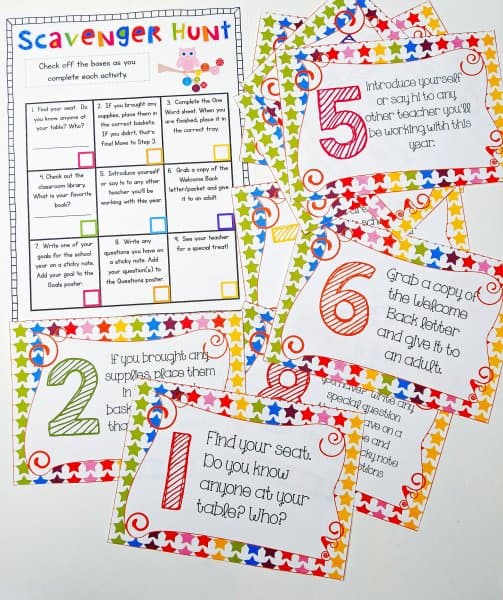 Scavenger Hunt
Check off the bases as you
complete each activity.
1. Find your seat. Do
you know anyone at
your table? Who?
2. If you brought any
supplies, place them in
the correct baskets.
If you didn't, that's
fine! Move to Step 3.
3. Complete the One
Word sheet. When you
are finished, place it in
the correct tray.
4. Check out the
classroom library.
What is your favorite
book?
5. Introduce yourself
or say hi to any other
teacher you'll be
working with this year.
6. Grab a copy of
the Welcome Back
letter/packet and give
it to an adult.
7. Write one of your
goals for the school
year on a sticky note.
Add your goal to the
Goals poster.
8. Write any
questions you have on
a sticky note. Add
your question(s) to
the Questions poster.
9. See your teacher
for a special treat!
5
Introduce yourself
or say hi to any
other teacher you'll
be working with this
year.
6
Grab a copy of
the Welcome
Back letter
and give it to
an adult.
2
If you brought any
supplies, place them
in
bask
tha
write any
special question
ave on a
e and
cky note
estions
1
Find your seat.
Do you know
anyone at your
table? Who?